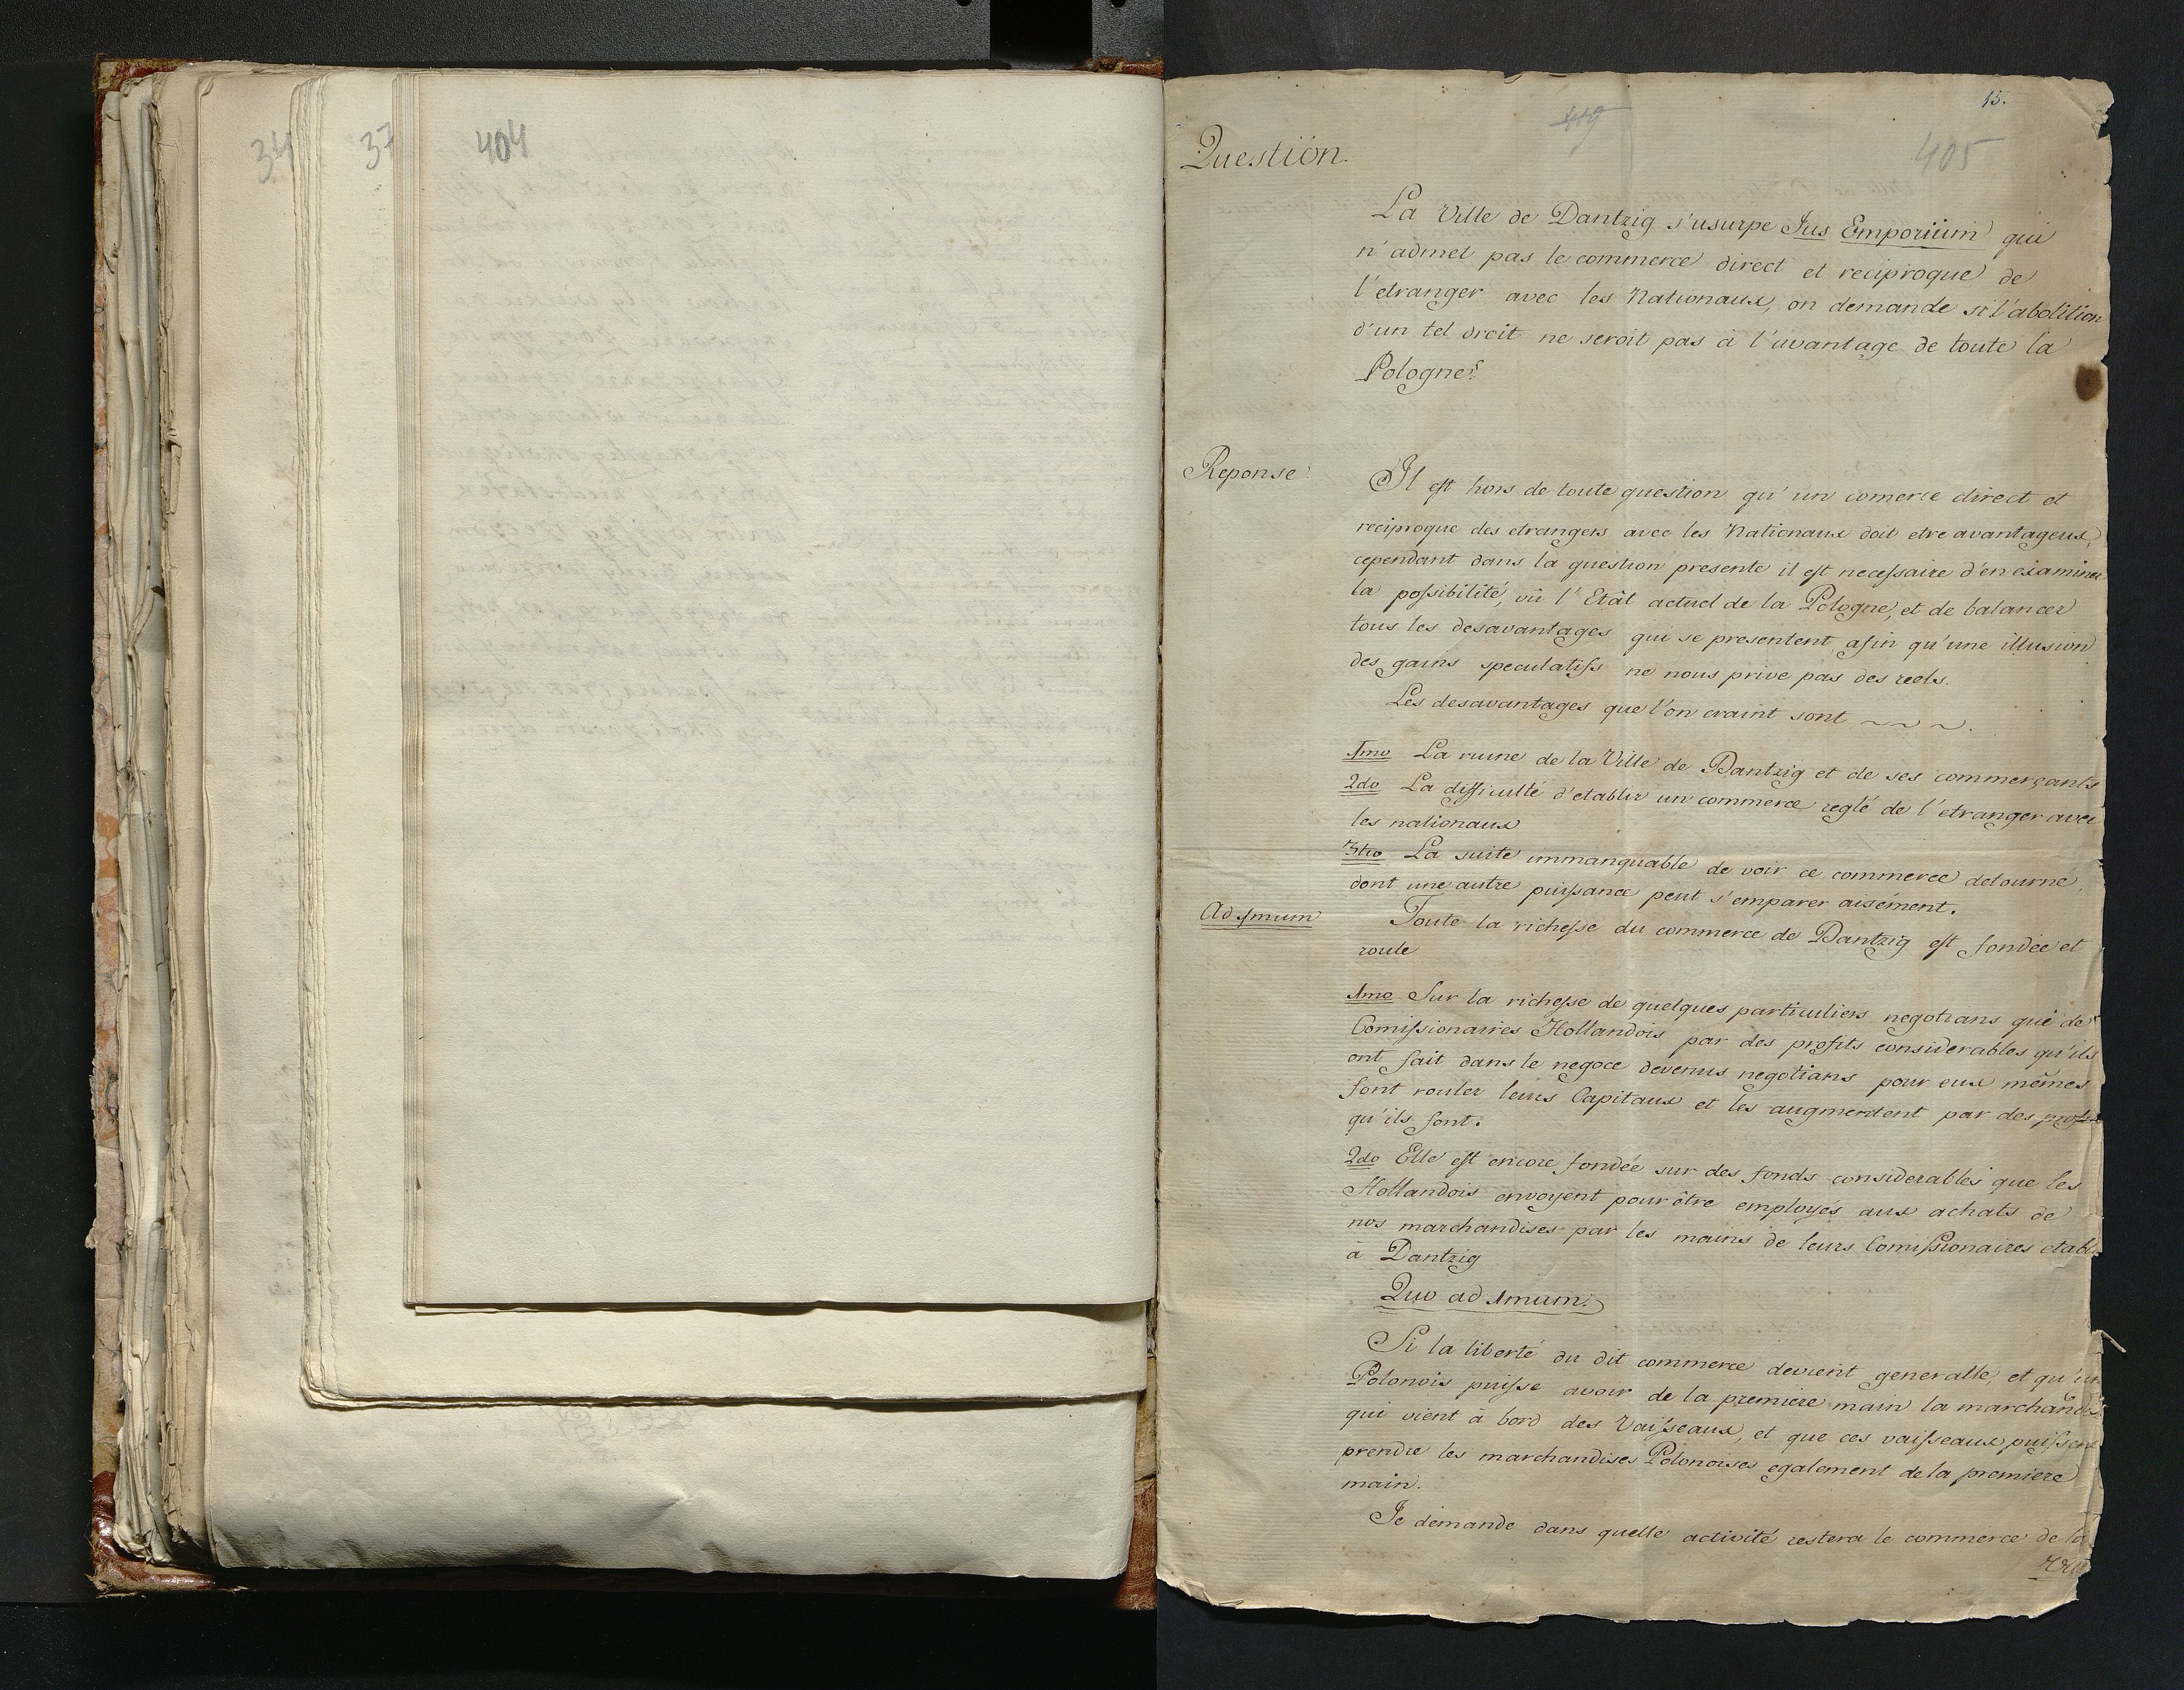 34
37
404
15.
419
405
Question.
La Ville de Dantzig s'usurpe Jus Emporium qui
n'admet pas le commerce direct et reciproque de
l'etranger avec les Nationaux, on demande si l'abolition
d'un tel droit ne seroit pas à l'avantage de toute la
Pologne?
Reponse.
Il est hors de toute question qu'un comerce direct et
reciproque des etrangers avec les Nationaux doit etre avantageux,
cependant dans la question presente il est necessaire d'en examiner
la possibilité, vû l'Etât actuel de la Pologne, et de balancer
tous les desavantages qui se presentent afin qu'une illusion
des gains speculatifs ne nous prive pas des reels.
Les desavantages que l'on craint sont ~ ~ ~.
1mo La ruine de la Ville de Dantzig et de ses commerçants
2do La difficulté d'etablir un commerce reglé de l'etranger avec
les nationaux
3tio La suite immanquable de voir ce commerce detourné,
dont une autre puissance peut s'emparer aisément.
Ad 1mum
Toute la richesse du commerce de Dantzig est fondée et
roule
1mo Sur la richesse de quelques particuliers negotians qui de
Comissionaires Hollandois par des profits considerables qu'ils
ont fait dans le negoce devenus negotians pour eux mêmes
font rouler leurs Capitaux et les augmentent par des profits
qu'ils font.
2do Elle est encore fondée sur des fonds considerables que les
Hollandois envoyent pour être employés aux achats de
nos marchandises par les mains de leurs Comissionaires etabl
à Dantzig
Quo ad 1mum.
Si la liberté du dit commerce devient generalle, et qu'un
Polonois puisse avoir de la premiere main la marchand
qui vient à bord des Vaisseaux, et que ces vaisseaux puissent
prendre les marchandises Polonoises egalement de la premiere
main.
Je demande dans quelle activité restera le commerce de la